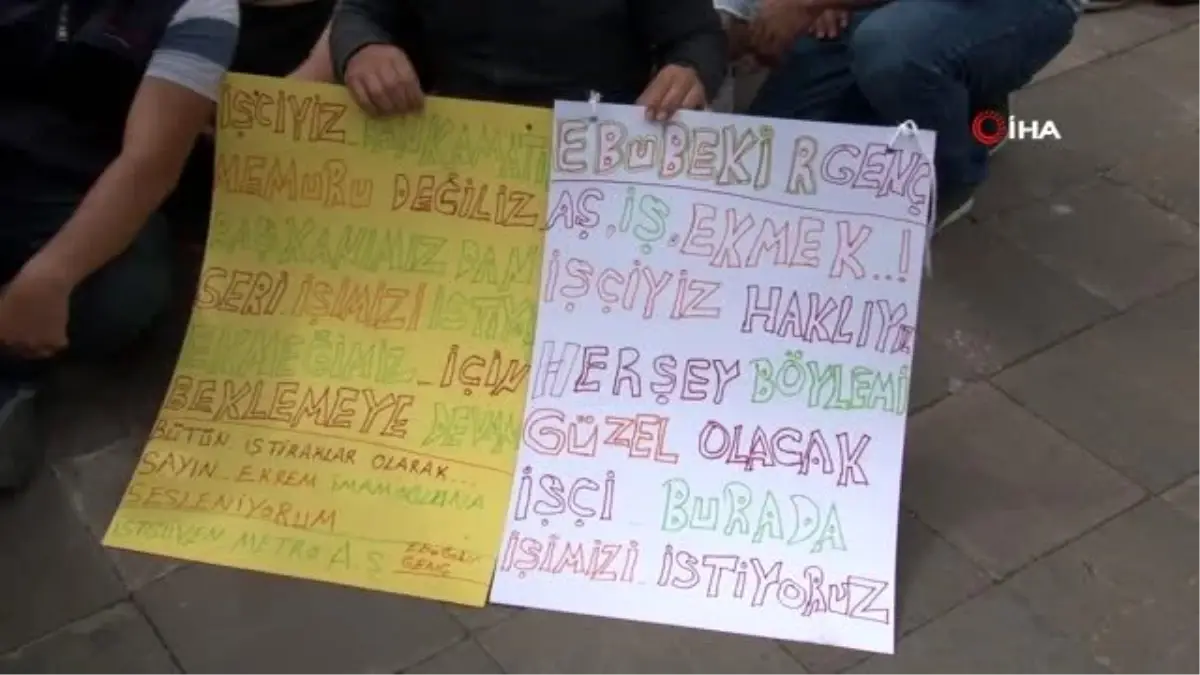 İŞÇİYİZ
MEMURU DEĞİLİZ
BABAKANIMIZ DAN
SERİ İŞİMİZİ İSTİYO
EKMEĞİMİZ İÇİN
BEKLEMEYE DEVAM
BÜTÜN İSTİRAKLAR OLARAK...
SAYIN EKREM İMAMOĞLUNA
SESLENİYORUM
METRO A.Ş GENÇ
EBUBEKİR GENÇ
AŞ, İŞ, EKMEK..!
İŞÇİYİZ HAKLIYIZ
HERŞEY BÖYLEMİ
GÜZEL OLACAK
İŞÇİ BURADA
İŞİMİZİ İSTİYORUZ
İHA